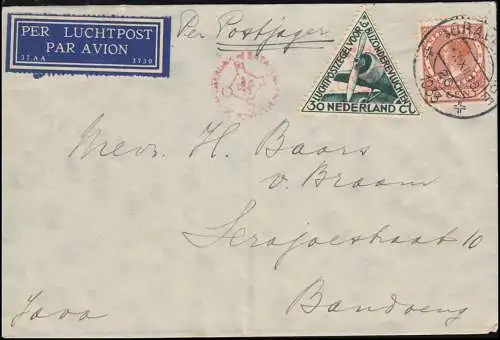 PER LUCHTPOST
PAR AVION
Per Postjager
LUCHTPOSTZEGEL VOOR BIJZONDERE VLUCHTEN
30 NEDERLAND CT
Mevr. H. Baars
v. Braam
Serajoestraat 10
Bandoeng
Java